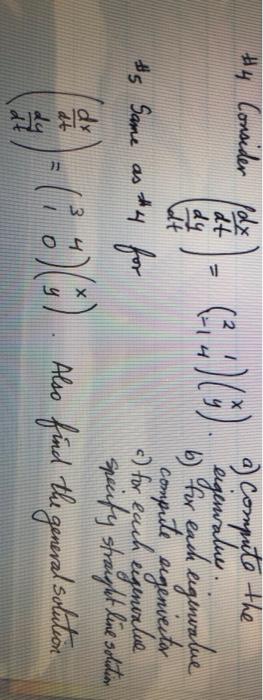 #4 Consider (dx/dt dy/dt) = (2 1 -1 4)(x y).
a) compute the eigenvalues.
b) for each eigenvalue
compute eigenvector
c) for each eigenvalue
specify straight line solution
#5 Same as #4 for
(dx/dt dy/dt) = (3 4 1 0)(x y). Also find the general solution